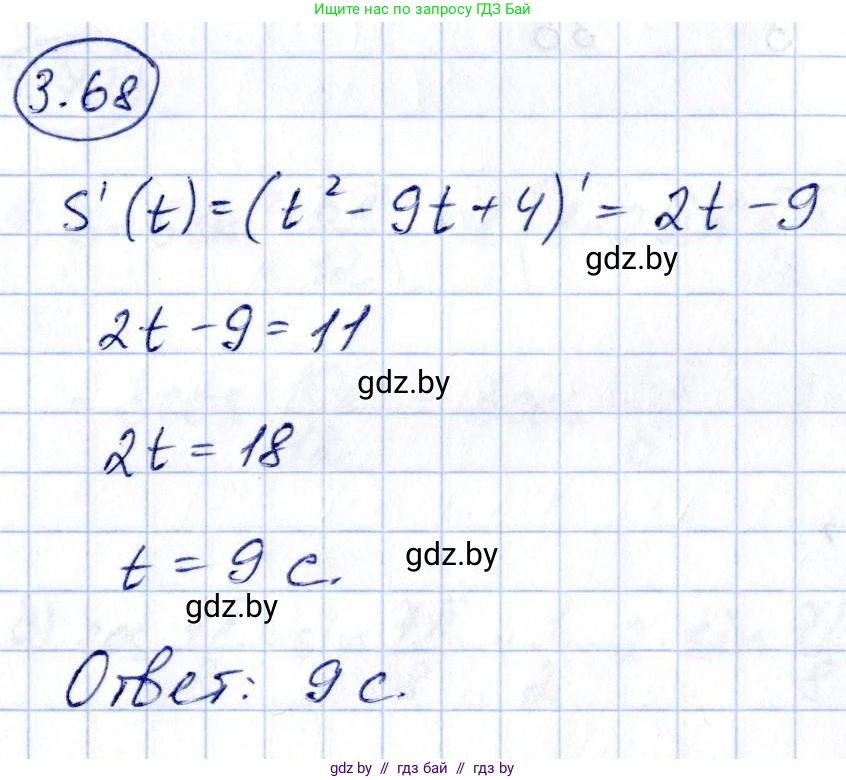 Ищите нас по запросу ГДЗ Бай
3.68
S'(t) = (t² - 9t + 4)' = 2t - 9
gdz.by
2t - 9 = 11
gdz.by
2t = 18
t = 9 с.
gdz.by
gdz.by
Ответ: 9 с.
gdz by // гдз бай // gdz by